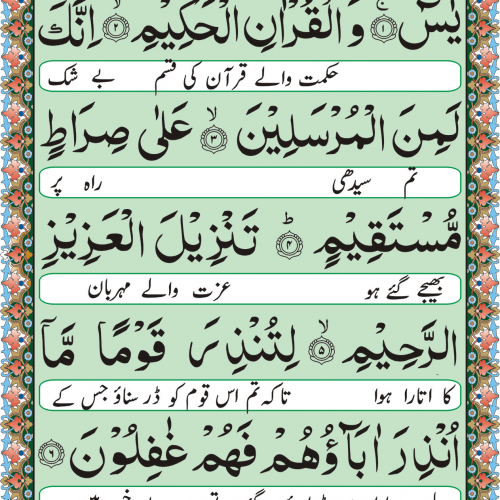 يٰسٓ ۚ ﴿۱﴾ وَ الْقُرْاٰنِ الْحَكِيْمِ ۙ ﴿۲﴾ اِنَّكَ
حکمت والے قرآن کی قسم بے شک
لَمِنَ الْمُرْسَلِيْنَ ۙ ﴿۳﴾ عَلٰى صِرَاطٍ
تم سیدھی راہ پر
مُّسْتَقِيْمٍ ؕ ﴿۴﴾ تَنْزِيْلَ الْعَزِيْزِ
بھیجے گئے ہو عزت والے مہربان
الرَّحِيْمِ ۙ ﴿۵﴾ لِتُنْذِرَ قَوْمًا مَّاۤ
کا اتارا ہوا تاکہ تم اس قوم کو ڈر سناؤ جس کے
اُنْذِرَ اٰبَآؤُهُمْ فَهُمْ غٰفِلُوْنَ ﴿۶﴾